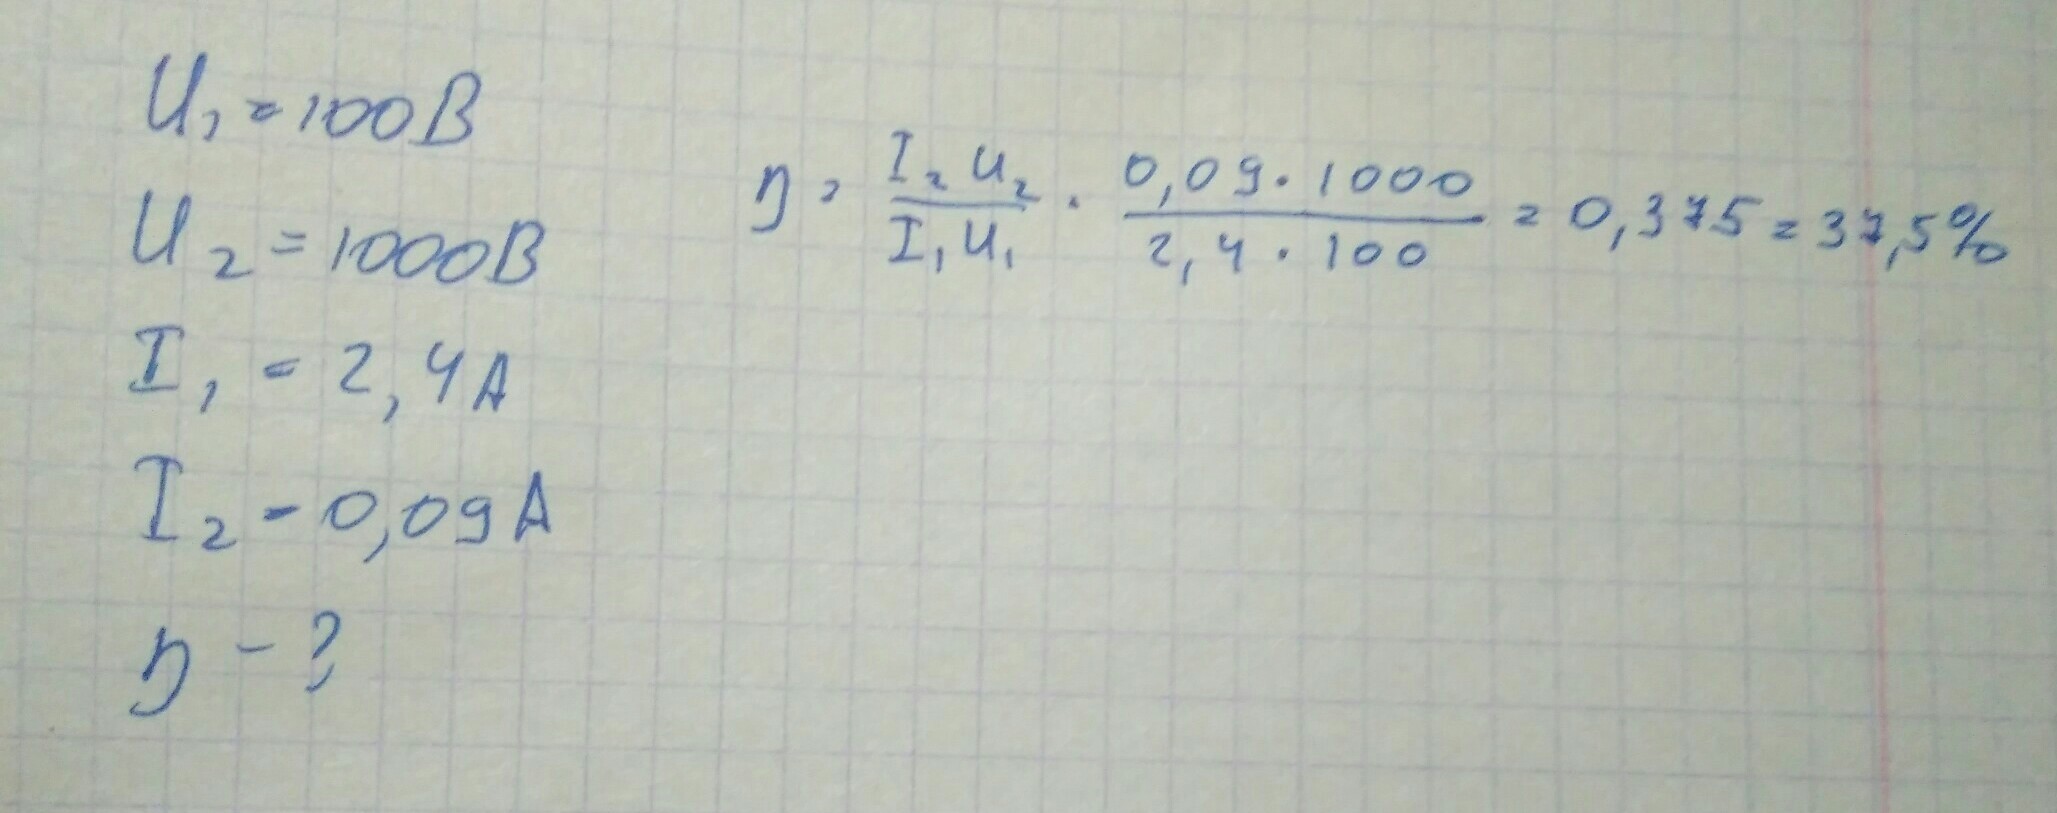 U₁ = 100В
U₂ = 1000В
I₁ = 2,4А
I₂ - 0,09А
η - ?
η = I₂U₂ / I₁U₁ = 0,09 · 1000 / 2,4 · 100 = 0,375 = 37,5%